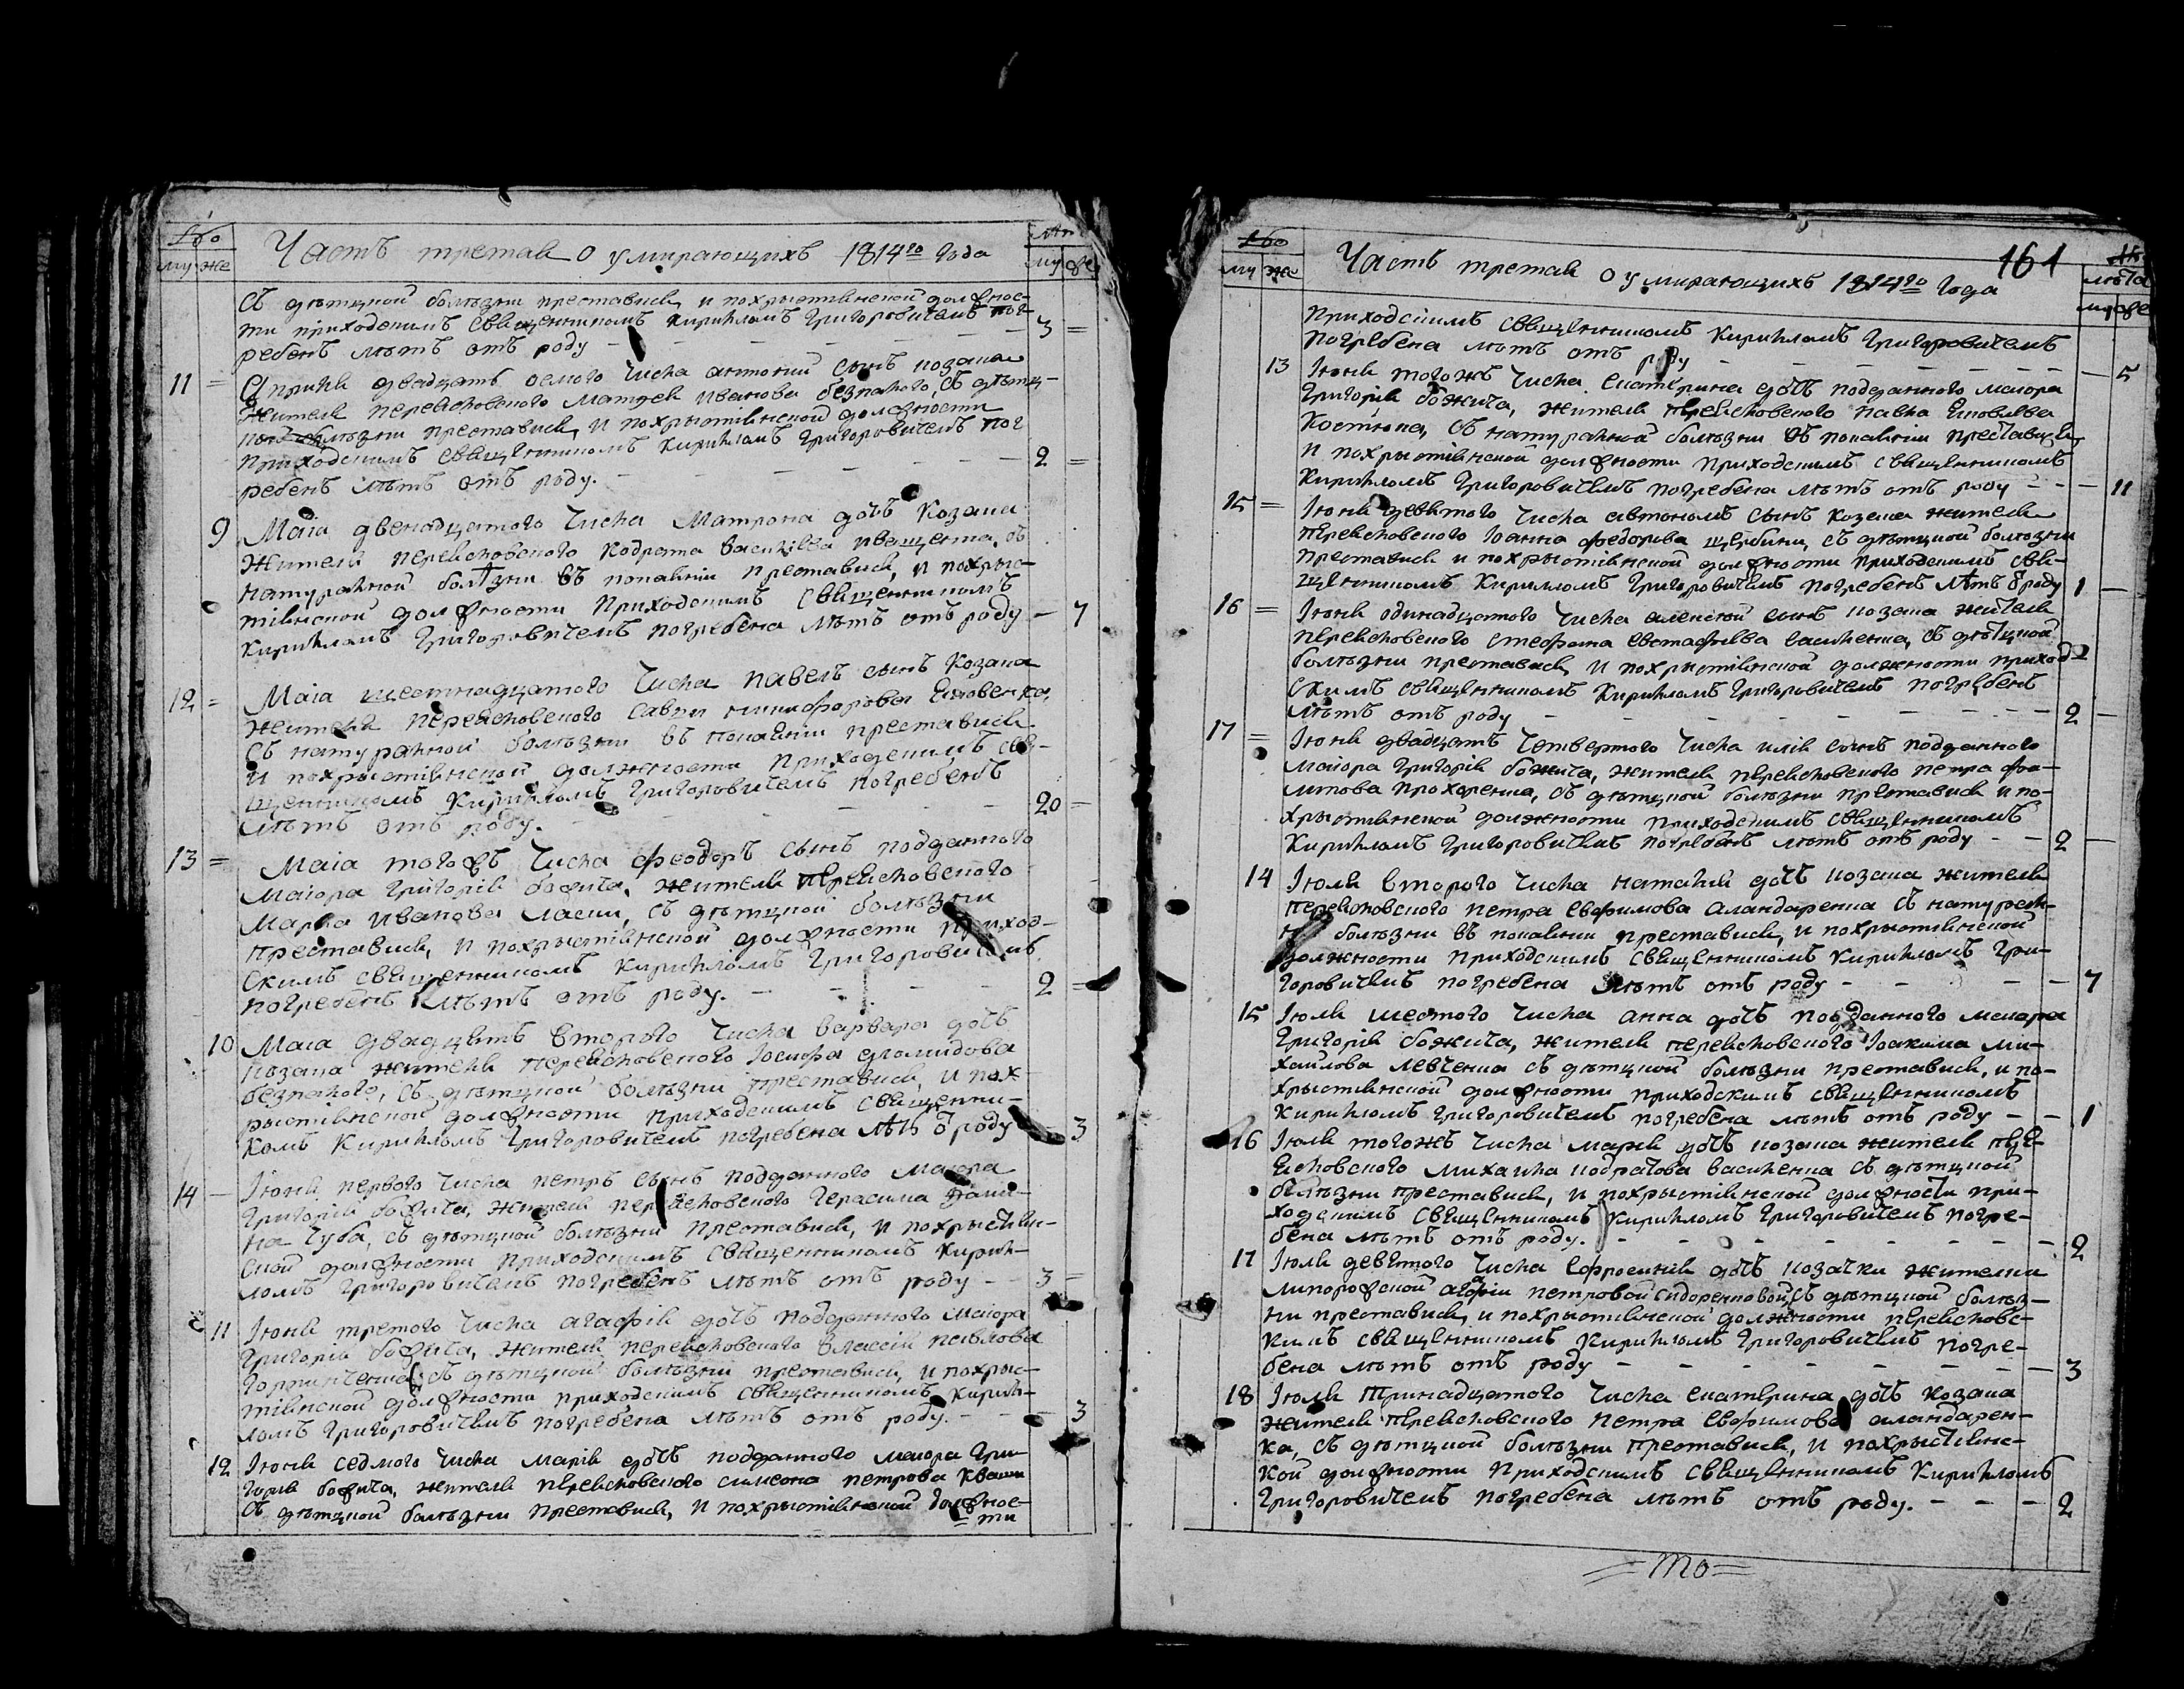 му же
Часть третая о умирающихъ 1814го года
му же
съ дѣтцкой болѣзни преставися, и похрыстіянской должнос-
ти приходскимъ священникомъ Кирилломъ Григоровичемъ пог-
ребенъ лѣтъ отъ роду – 3 =
11 = Априля двадцать осмого числа антоній сынъ козака
жителя перекоповского Матфея Иванова безпалого, съ дѣтц-
кой болѣзни преставися, и похрыстіянской должности
приходскимъ священникомъ Кирилломъ Григоровичемъ пог
ребенъ лѣтъ отъ роду. – 2 =
9 Маіа двенадцатого числа Матрона дочь Козака
жителя перекоповского Кодрата Василіева Иващенка, съ
натуралной болѣзни въ покаяніи преставися, и похрыс-
тіянской должности приходскимъ священникомъ
Кирилломъ Григоровичемъ погребена лѣтъ отъ роду – 7
12 = Маіа шестнадцатого числа павелъ сынъ Козака
жителя перекоповского Саввы никифорова
съ натуралной болѣзни въ покаяніи преставися
и похрыстіянской должности приходскимъ свя-
щенникомъ Кирилломъ Григоровичемъ погребенъ
лѣтъ отъ роду. – 20 =
13 = Маіа тогожъ числа феодоръ сынъ подданого
маіора Григорія божича, жителя перекоповского
Марка Иванова съ дѣтцкой болѣзни
преставися, и похрыстіянской должности приход-
скимъ священникомъ Кирилломъ Григоровичемъ
погребенъ лѣтъ отъ роду. – 2 =
10 Маіа двадцять второго числа варвара дочь
козака жителя перекоповского Іосифа
безпалого, съ дѣтцкой болѣзни преставися, и пох-
рыстіянской должности приходскимъ священни-
комъ Кирилломъ Григоровичемъ погребена лѣтъ ѿ роду 3
14 – Іюня первого числа петръ сынъ подданого маіора
Григорія божича, жителя перекоповского Герасима дани-
ла чуба, съ дѣтцкой болѣзни преставися, и похрыстіян-
ской должности приходскимъ священникомъ Кирил-
ломъ Григоровичемъ погребенъ лѣтъ отъ роду – 3 –
11 Іюня третого числа агафія дочь подданого маіора
Григорія божича, жителя перекоповского Власія павлова
съ дѣтцкой болѣзни преставися, и похрыс-
тіянской должности приходскимъ священникомъ Кирил-
ломъ Григоровичемъ погребена лѣтъ отъ роду. – 3
12 Іюня седмого числа марія дочь подданого маіора Гри-
горія божича, жителя перекоповского симеона петрова Кваши
съ дѣтцкой болѣзни преставися, и похрыстіянской должнос-
ти
161
му же
Часть третая о умирающихъ 1814го года
лѣта
му же
приходскимъ священникомъ Кирилломъ Григоровичемъ
погребена лѣтъ отъ роду – 5
13 Іюня тогожъ числа екатерина дочь подданого маіора
Григорія божича, жителя перекоповского павла
Костюка, съ натуралной болѣзни въ покаяніи преставися,
и похрыстіянской должности приходскимъ священникомъ
Кирилломъ Григоровичемъ погребена лѣтъ отъ роду – 11
15 = Іюня девятого числа автономъ сынъ козака жителя
перекоповского Іоанна федорова щербины, съ дѣтцкой болѣзни
преставися и похрыстіянской должности приходскимъ свя-
щенникомъ Кирилломъ Григоровичемъ погребенъ лѣтъ ѿ роду 1 –
16 = Іюня одинадцатого числа алексѣй сынъ козака жителя
перекоповского стефана евстафіева василенка, съ дѣтцкой
болѣзни преставися, и похрыстіянской должности приход-
скимъ священникомъ Кирилломъ Григоровичемъ погребенъ
лѣтъ отъ роду – 2 –
17 = Іюня двадцать четвертого числа илія сынъ подданого
маіора Григорія божича, жителя перекоповского петра фа-
прохоренка, съ дѣтцкой болѣзни преставися и по-
хрыстіянской должности приходскимъ священникомъ
Кирилломъ Григоровичемъ погребенъ лѣтъ отъ роду – 2 –
14 Іюля второго числа наталія дочь козака жителя
перекоповского петра евфимова аландаренка съ натурал-
ной болѣзни въ покаяніи преставися, и похрыстіянской
должности приходскимъ священникомъ Кирилломъ Гри-
горовичемъ погребена лѣтъ отъ роду – 7
15 Іюля шестого числа анна дочь подданого маіора
Григорія божича, жителя перекоповского Іоакима ми-
хайлова левченка съ дѣтцкой болѣзни преставися, и по-
хрыстіянской должности приходскимъ священникомъ
Кирилломъ Григоровичемъ погребена лѣтъ отъ роду – 1
16 Іюля тогожъ числа марія дочь козака жителя пере-
коповского Михаила кодратова василенка съ дѣтцкой
болѣзни преставися, и похрыстіянской должности при-
ходскимъ священникомъ Кирилломъ Григоровичемъ погре-
бена лѣтъ отъ роду. – 2
17 Іюля девятого числа ефросинія дочь козачки жителки
агафіи петровой сидоренковой, съ дѣтцкой болѣз-
ни преставися, и похрыстіянской должности перекоповс-
кимъ священникомъ Кирилломъ Григоровичемъ погре-
бена лѣтъ отъ роду – 3
18 Іюля тринадцатого числа екатерина дочь козака
жителя перекоповского петра евфимова аландарен-
ка, съ дѣтцкой болѣзни преставися, и похрыстіянс-
кой должности приходскимъ священникомъ Кирилломъ
Григоровичемъ погребена лѣтъ отъ роду. – 2
= то =